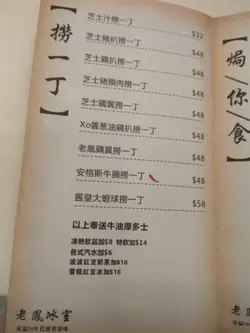 撈一丁
芝士汁撈一丁 $32
芝士豬扒撈一丁 $48
芝士鷄扒撈一丁 $48
芝士豬頸肉撈一丁 $48
芝士鷄翼撈一丁 $48
Xo醬葱油鷄扒撈一丁 $48
老鳳鷄翼撈一丁 $48
安格斯牛腩撈一丁 $48
醬皇大蝦球撈一丁 $58
以上奉送牛油厚多士
凍熱飲品加$8 特飲加$14
各式汽水加$6
波波紅豆奶茶加$16
雪糕紅豆冰加$16
老鳳冰室
焗/你/食
老鳳